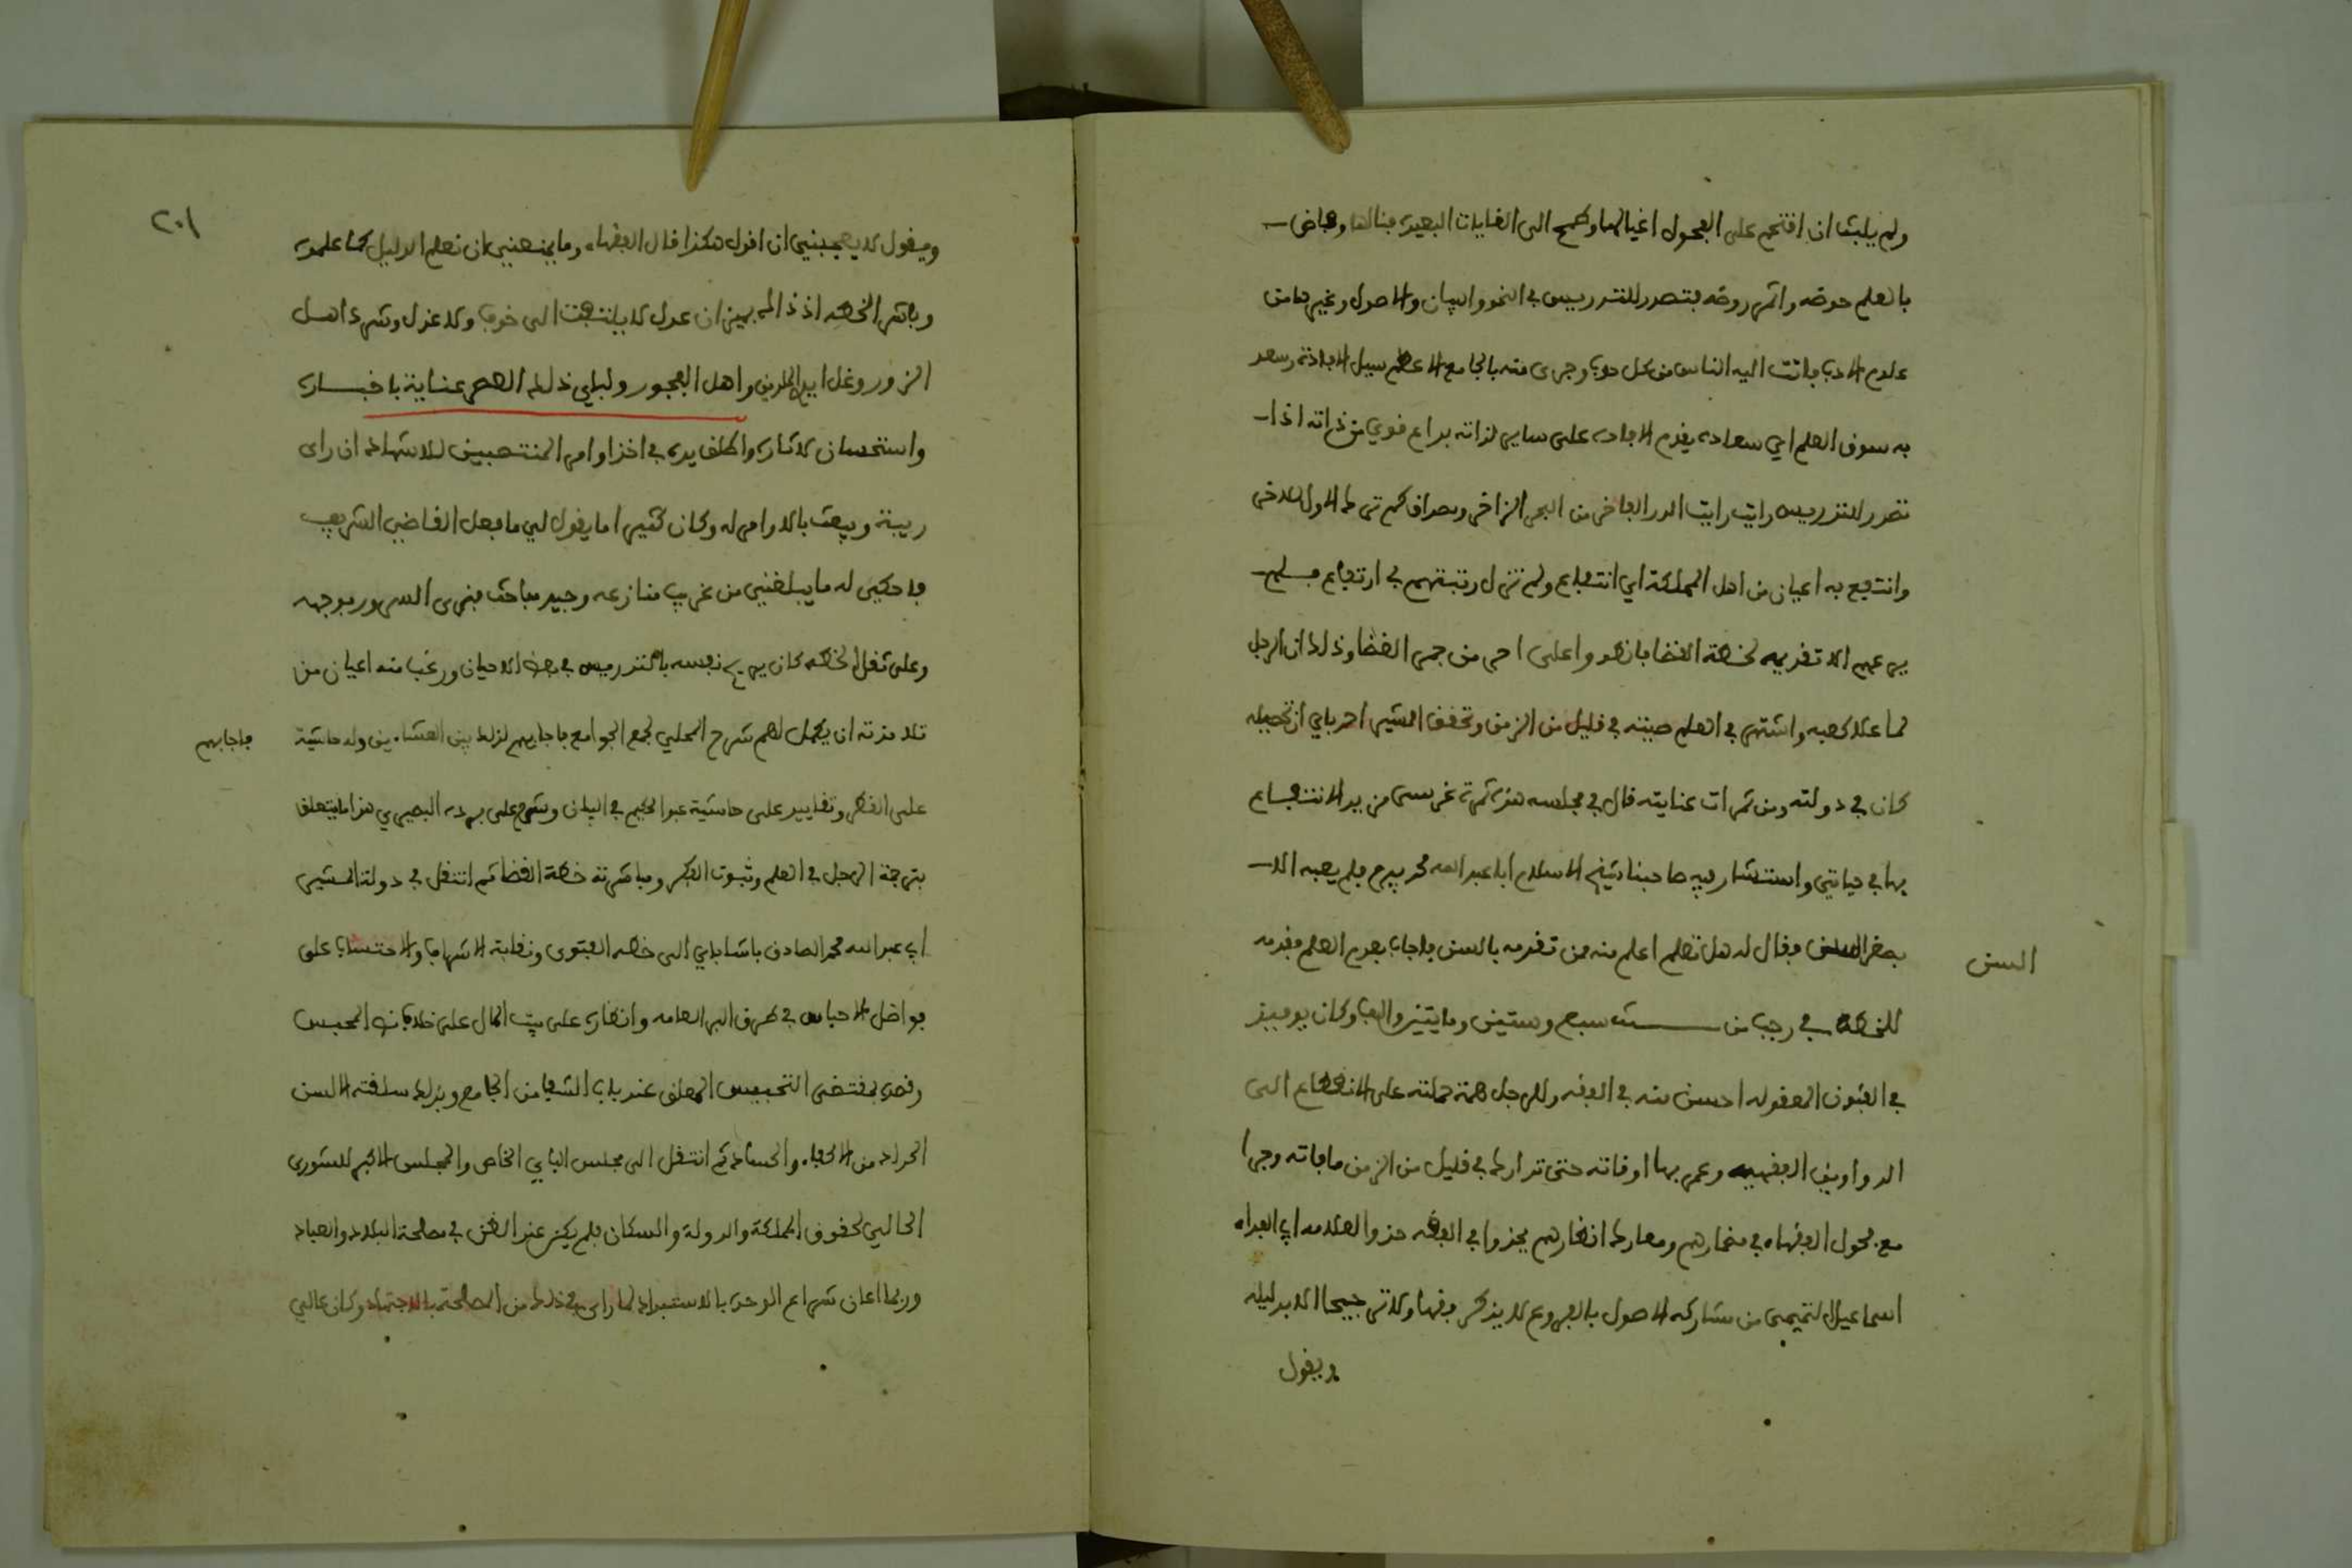 ولم يلبث ان اقتحم على الفحول اغيالها وطمح الى الغايات البعيدة فنالها وفاض
بالعلم حوضه واثمر روضه فتصدر للتدريس في النحو والبيان والاصول وغيرها من
علوم الادب فاتت اليه الناس من كل حدب وجرى منه بالجامع الاعظم سيل الافادة وسعد
به سوق العلم اي سعادة يقدم الافادة على ساير لذاته بداع قوي من ذاته اذا
تصدر للتدريس رايت رايت الدر الفاخر من البحر الزاخر ومصداق كم ترك الاول للاخر
وانتفع به اعيان من اهل المملكة اي انتفاع ولم تزل رتبتهم في ارتفاع فلم
يرعهم الا تقديمه لخطة القضا بانهو واعلى احر من جمر الغضا وذلك ان الرجل
لما علا كعبه واشتهر في العلم صيته في قليل من الزمن وتحقق المشير احمد باي ان تحصيله
كان في دولته ومن ثمرات عنايته قال في مجلسه هذه ثمرة غرسى من يد الانتفاع
بها في حياتي واستشار فيه صاحبنا شيخ الاسلام ابا عبد الله محمد بيرم فلم يعبه الا
بصغر السن فقال له هل تعلم اعلم منه ممن تقدمه بالسن فاجاب بعدم العلم فقدمه
السن
للخطة في رجب من سنة سبع وستين ومايتين والف وكان يوميذ
في الفنون المعقوله احسن منه في الفقه وللرجل همة حملته على الانقطاع الى
الدواوين الفقهيه وعمر بها اوقاته حتى تدارك في قليل من الزمن ما فاته وجرا
مع فحول الفقهاء في مضمارهم ومعارك انظارهم يحذوا في الفقه حذو العلامه ابي الفداء
اسماعيل التميمى من مشاركه الاصول بالفروع لا يذكر فقها ولا ترجيحا الا بدليله
ويقول
٢٠١
ويقول لا يعجبني ان اقول هكذا قال الفقهاء وما يمنعني ان نعلم الدليل كما علموه
وباشر الخطه اذ ذاك بميزان عدل لا يلتفت الى خوف ولا عذل وشرد اهل
الزور وغل ايدي الظالمين واهل الفجور ولباي ذلك العصر عناية باخباره
واستحسان لاثاره واطلق يده في اخذ اوامر المنتصبين للاشهاد ان راى
ريبة ويبعث بالاوامر له وكان كثيرا ما يقول لي ما فعل القاضي الشريف
فاحكى له ما يبلغني من غريب منازعه وجيد مباحث فنرى السرور بوجهه
وعلى ثقل الخطه كان يريح نفسه بالتدريس في بعض الاحيان ورغب منه اعيان من
تلامذته ان يكمل لهم شرح المحلي لجمع الجوامع فاجابهم لذلك بين العشاءين وله حاشية
فاجابهم
على القطر وتقاييد على حاشية عبد الحكيم في البيان وشرح على بردة البصيري هذا ما يتعلق
بترجمة الرجل في العلم وثبوت الفكر ومباشرته خطة القضا ثم انتقل في دولة المشير
ابي عبد الله محمد الصادق باشا باي الى خطه الفتوى ونقابة الاشراف والاحتساب على
فواضل الاحباس في طرق البر العامه وانظاره على بيت المال على خلاف نص المحبس
وقصره بمقتضى التحبيس المعلق عند باب الشفا من الجامع وبذلك سلقته السن
الحداد من الاكفاء والحساد ثم انتقل الى مجلس الباي الخاص والمجلس الاكبر للشورى
الحالي لحقوق المملكة والدولة والسكان فلم يكن عند الظن في مصلحة البلاد والعباد
وربما اعان شراع الوحدة بالاستبداد لما راى في ذلك من المصلحة بالاجتهاد وكان عالي